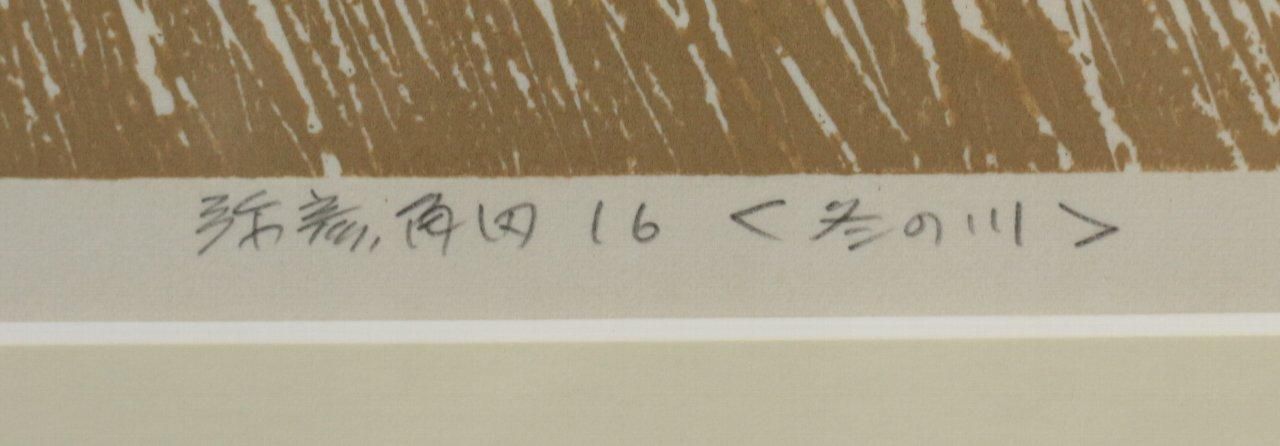 弥彦,角田 16 <冬の川>